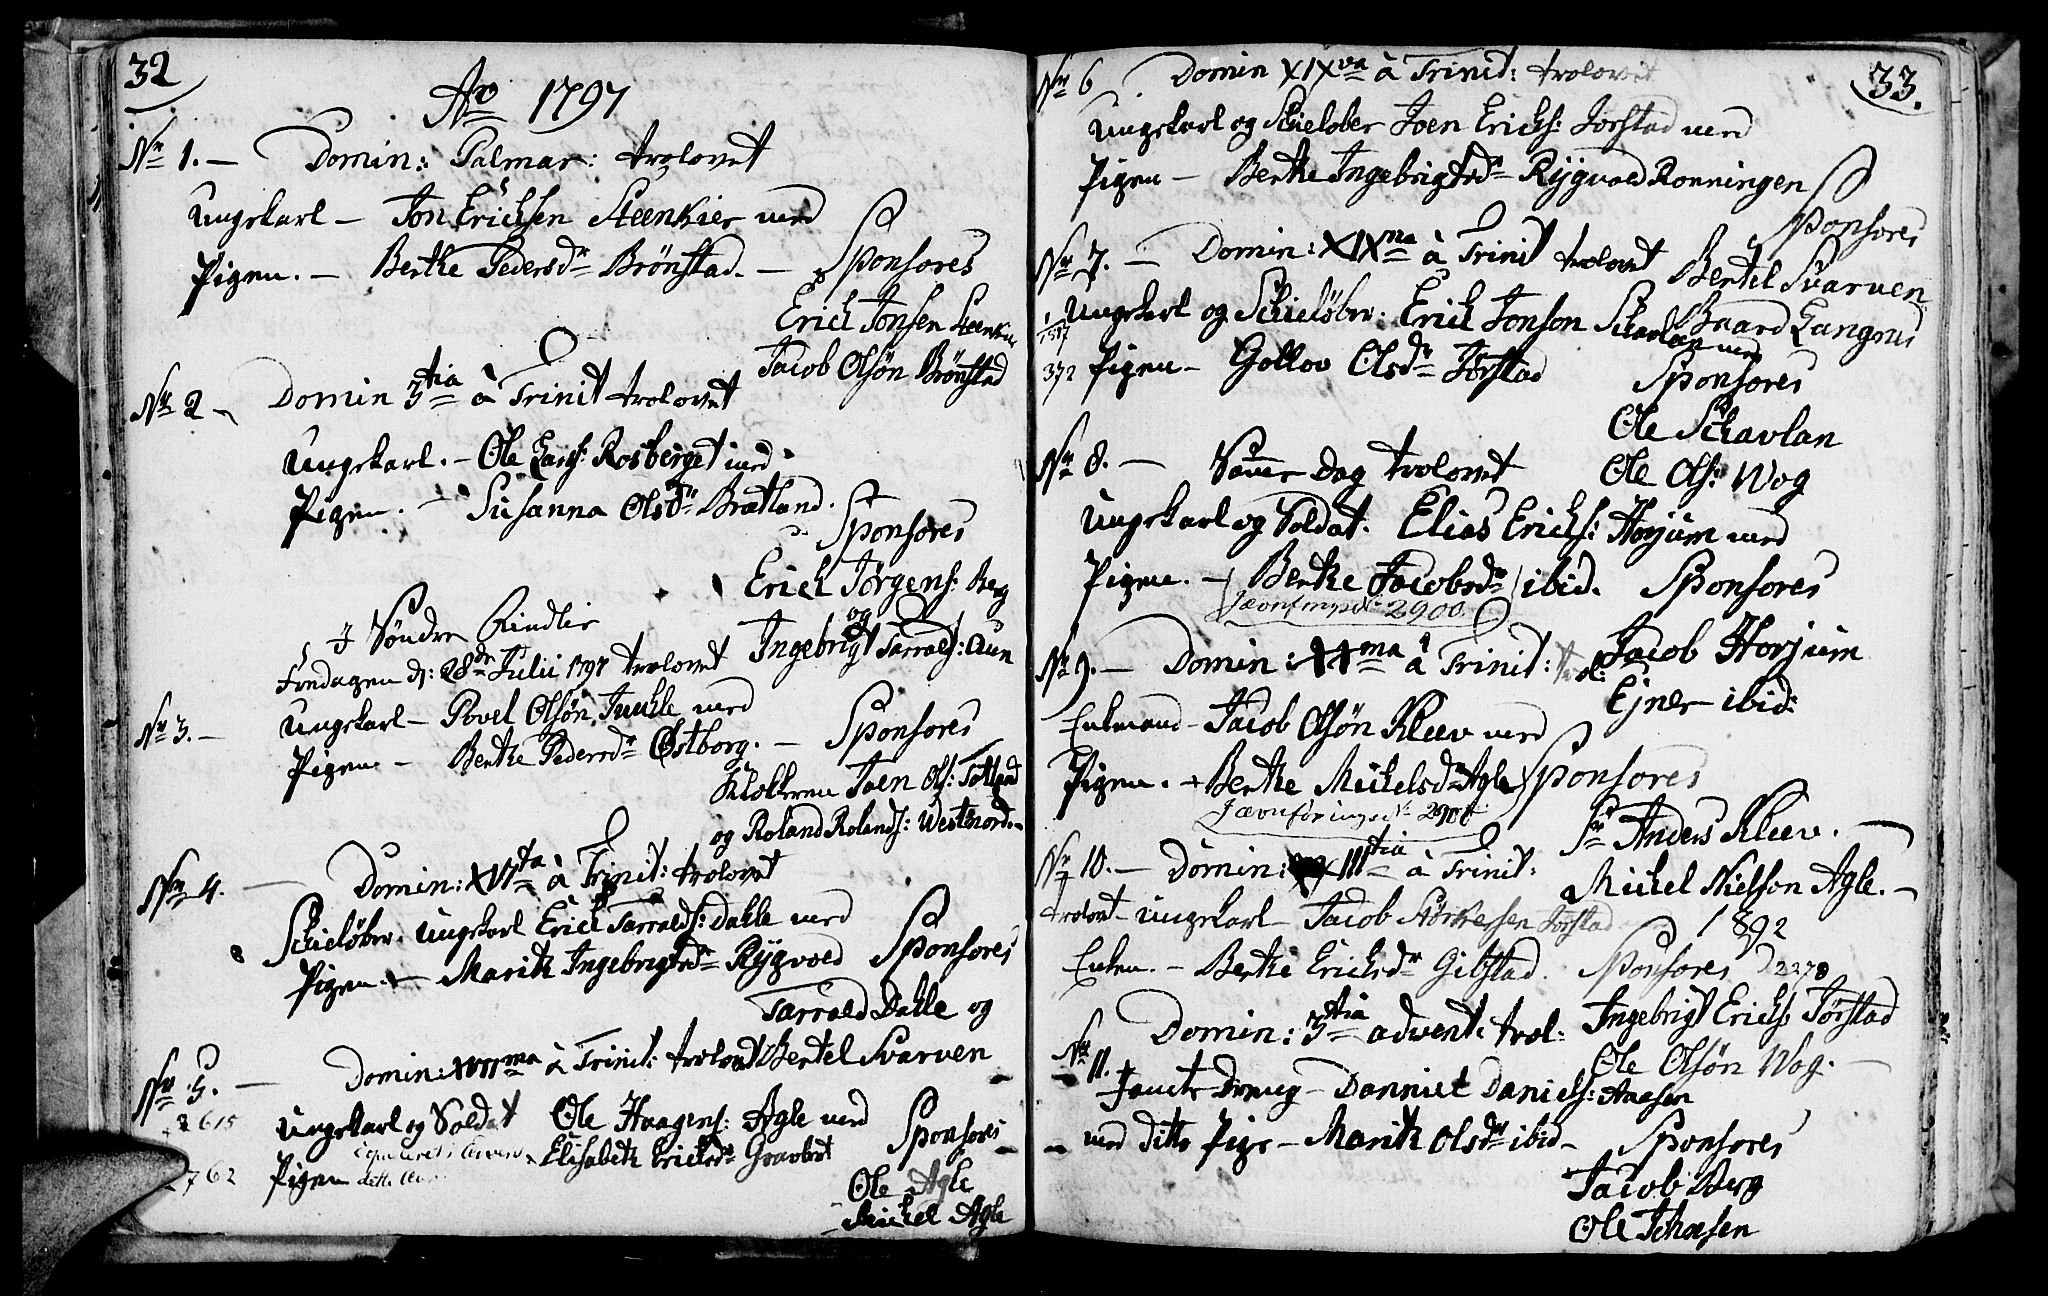 32
Ao 1797
Nr 1. – Domin: Palmar: trolovet
Ungekarl – Jon Erichsen Steenkier med
Pigen. – Berthe Pedersdr Brönstad. – Sponsores
Erich Jonsen Steenkier
Jacob Olsön Brönstad
Nr 2 – Domin 3tia à Trinit trolovet
Ungekarl. – Ole Larss: Rosberget med
Pigen. – Susanna Olsdr Brætland.
Sponsores
Erich Jörgens: Berg
og
Ingebrigt Tarralds: Aun
I Söndre Rindlie
Fredagen d: 28de Julii 1797 trolovet
Nr 3. – Ungekarl – Povel Olsön Juulle med
Pigen – Berthe Pedersdr Østborg. – Sponsores
Klokkeren Joen Ols: Totland
og Roland Rolands: Westnord
Nr 4. – Domin: XVIta à Trinit: trolovet
Skielöber. Ungekarl Erich Tarralds: Dahle med
Pigen – Marith Ingebrigtsdr Rÿgvold Sponsores
Tarrald Dahle og
Bertel Svarven
Nr 5. – Domin: XVIIma à Trinit: trolovet
2615 Ungekarl og Soldat Ole Haagens: Agle med Sponsores
762 Pigen Elisabeth Erichsdr Gravbrot
Ole Agle
Michel Agle
33.
Nr 6 Domin XIXva à Trinit: trolovet
Ungekarl og Skielöber Joen Erichs: Jörstad med
Pigen – Berthe Ingebrigtsdr Rÿgvold Ronningen
Sponsores
Bertel Svarven
Baard Langnes
Nr 7. – Domin: XIXma à Trinit trolovet
Ungekarl og Skielöber. Erich Jonson Skavlan med
372 Pigen – Gollov Olsdr Jörstad
Sponsores
Ole Skavlan
Ole Ols: Wog
Nr 8. – Samme Dag trolovet
Ungekarl og Soldat. Elias Erichs: Horjum med
Pigen. – (Berthe Jacobsdr) ibid. Sponsores
Jævnføringsdr 2900.
Jacob Horjum
Ejner ibid:
Nr 9. – Domin: XXma à Trinit: trol:
Enkemand – Jacob Olsön Kleev med
Pigen. – Berthe Michelsdr Agle Sponsores
Jævnføringsdr 2900
Sr Anders Kleev.
Michel Nielson Agle. –
Nr 10. – Domin: XXIIItia à Trinit:
trolovet – Ungekarl – Jacob Störkersen Jörstad 1892
Enken. – Berthe Erichsdr Gibstad. Sponsores 2278
Ingebrigt Erichs Jörstad
Ole Olsön Wog. –
Nr 11. Domin: 3tia advent: trol:
Daniel Daniels: Aassen
med ditto Pige – Marith Olsdr ibid –
Sponsores
Jacob Berg
Ole Johnsen